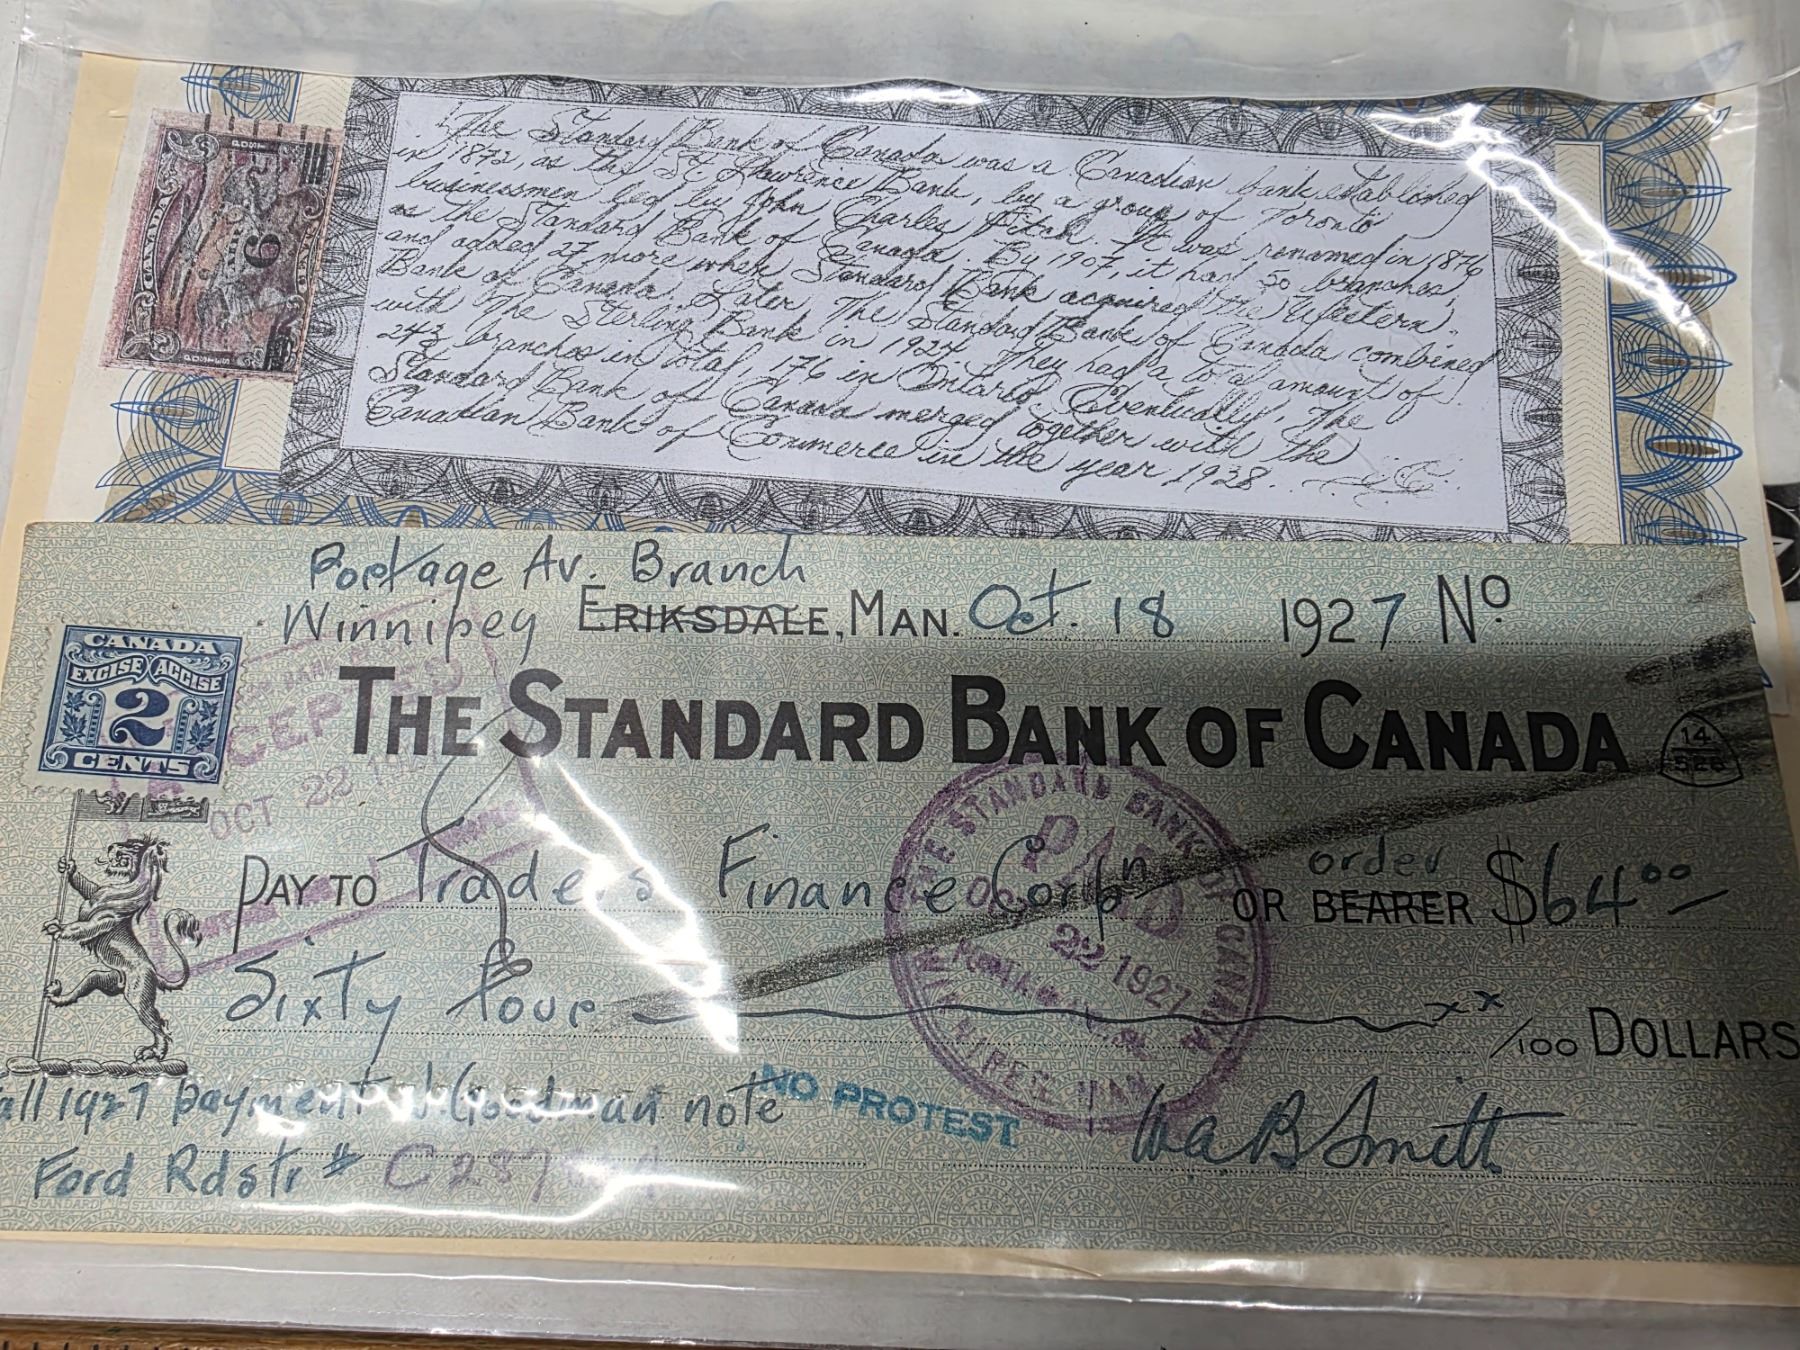 The Standard Bank of Canada was a Canadian bank established
in 1872, as the St Lawrence Bank, by a group of Toronto
businessmen led by John Charles Fitch. It was renamed in 1876
as the Standard Bank of Canada. By 1907, it had 50 branches,
and added 27 more when Standard Bank acquired The Western
Bank of Canada. Later The Standard Bank of Canada combined
with The Sterling Bank in 1924. They had a total amount of
243 branches in total, 176 in Ontario. Eventually, The
Standard Bank of Canada merged together with the
Canadian Bank of Commerce in the year 1928.
CANADA
6
CENTS
POSTES
Portage Av. Branch
Winnipeg ERIKSDALE, MAN. Oct. 18 1927 No
CANADA
EXCISE ACCISE
2
CENTS
THE STANDARD BANK OF CANADA
14
526
OCT 22
THE STANDARD BANK OF CANADA
PAID
22 1927
WINNIPEG MAN
PAY TO Traders Finance Corpn OR BEARER order $64.00
Sixty four xx/100 DOLLARS
all 1927 payment Goodman note
NO PROTEST
Wa B Smith
Ford Rdstr # C287